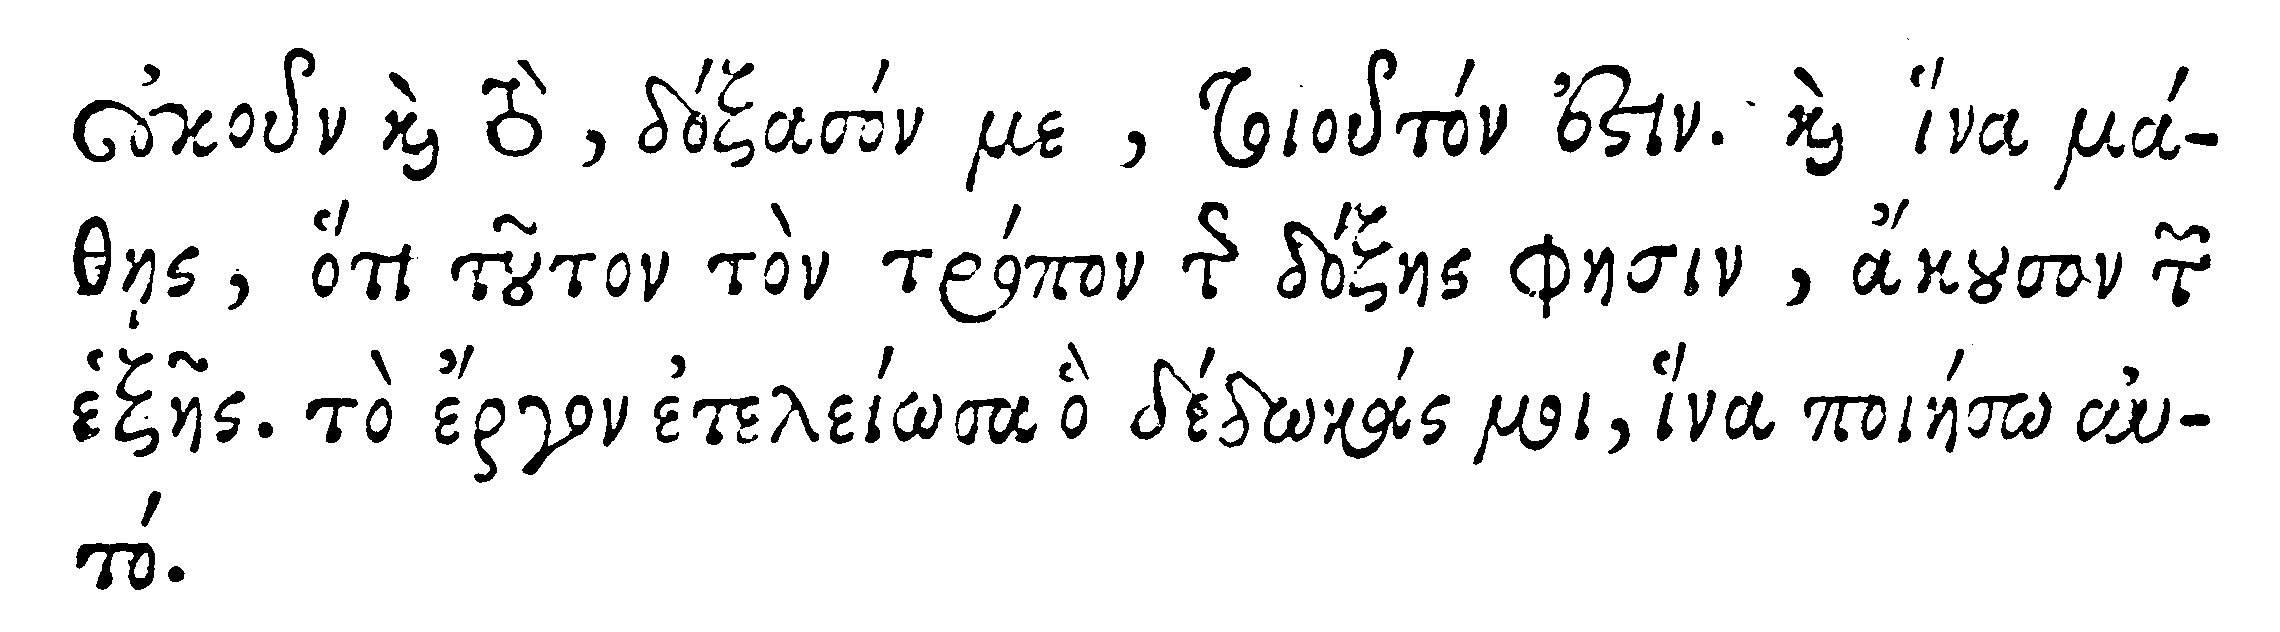 οὐκοῦν καὶ τὸ, δόξασόν με, τοιοῦτόν ἐστιν. καὶ ἵνα μά-
θης, ὅτι τοῦτον τὸν τρόπον τῆς δόξης φησιν, ἄκουσον τῶν
ἑξῆς. τὸ ἔργον ἐτελείωσα ὃ δέδωκάς μοι, ἵνα ποιήσω αὐ-
τό.